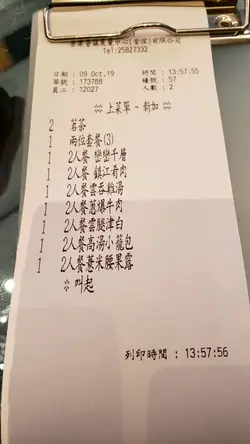 香港會議展覽中心(管理)有限公司
Tel:25827332
日期 : 09 Oct,19
時間 : 13:57:55
單號 : 173788
檯號 : 57
員工 : 12027
人數 : 2
※ 上菜單 - 新加 ※
2 茗茶
1 兩位套餐(3)
1 2人餐 巒巒千層
1 2人餐 鎮江肴肉
1 2人餐雲吞雞湯
1 2人餐蔥爆牛肉
1 2人餐雲腿津白
1 2人餐高湯小籠包
1 2人餐薏米腰果露
※ 叫起
列印時間 : 13:57:56